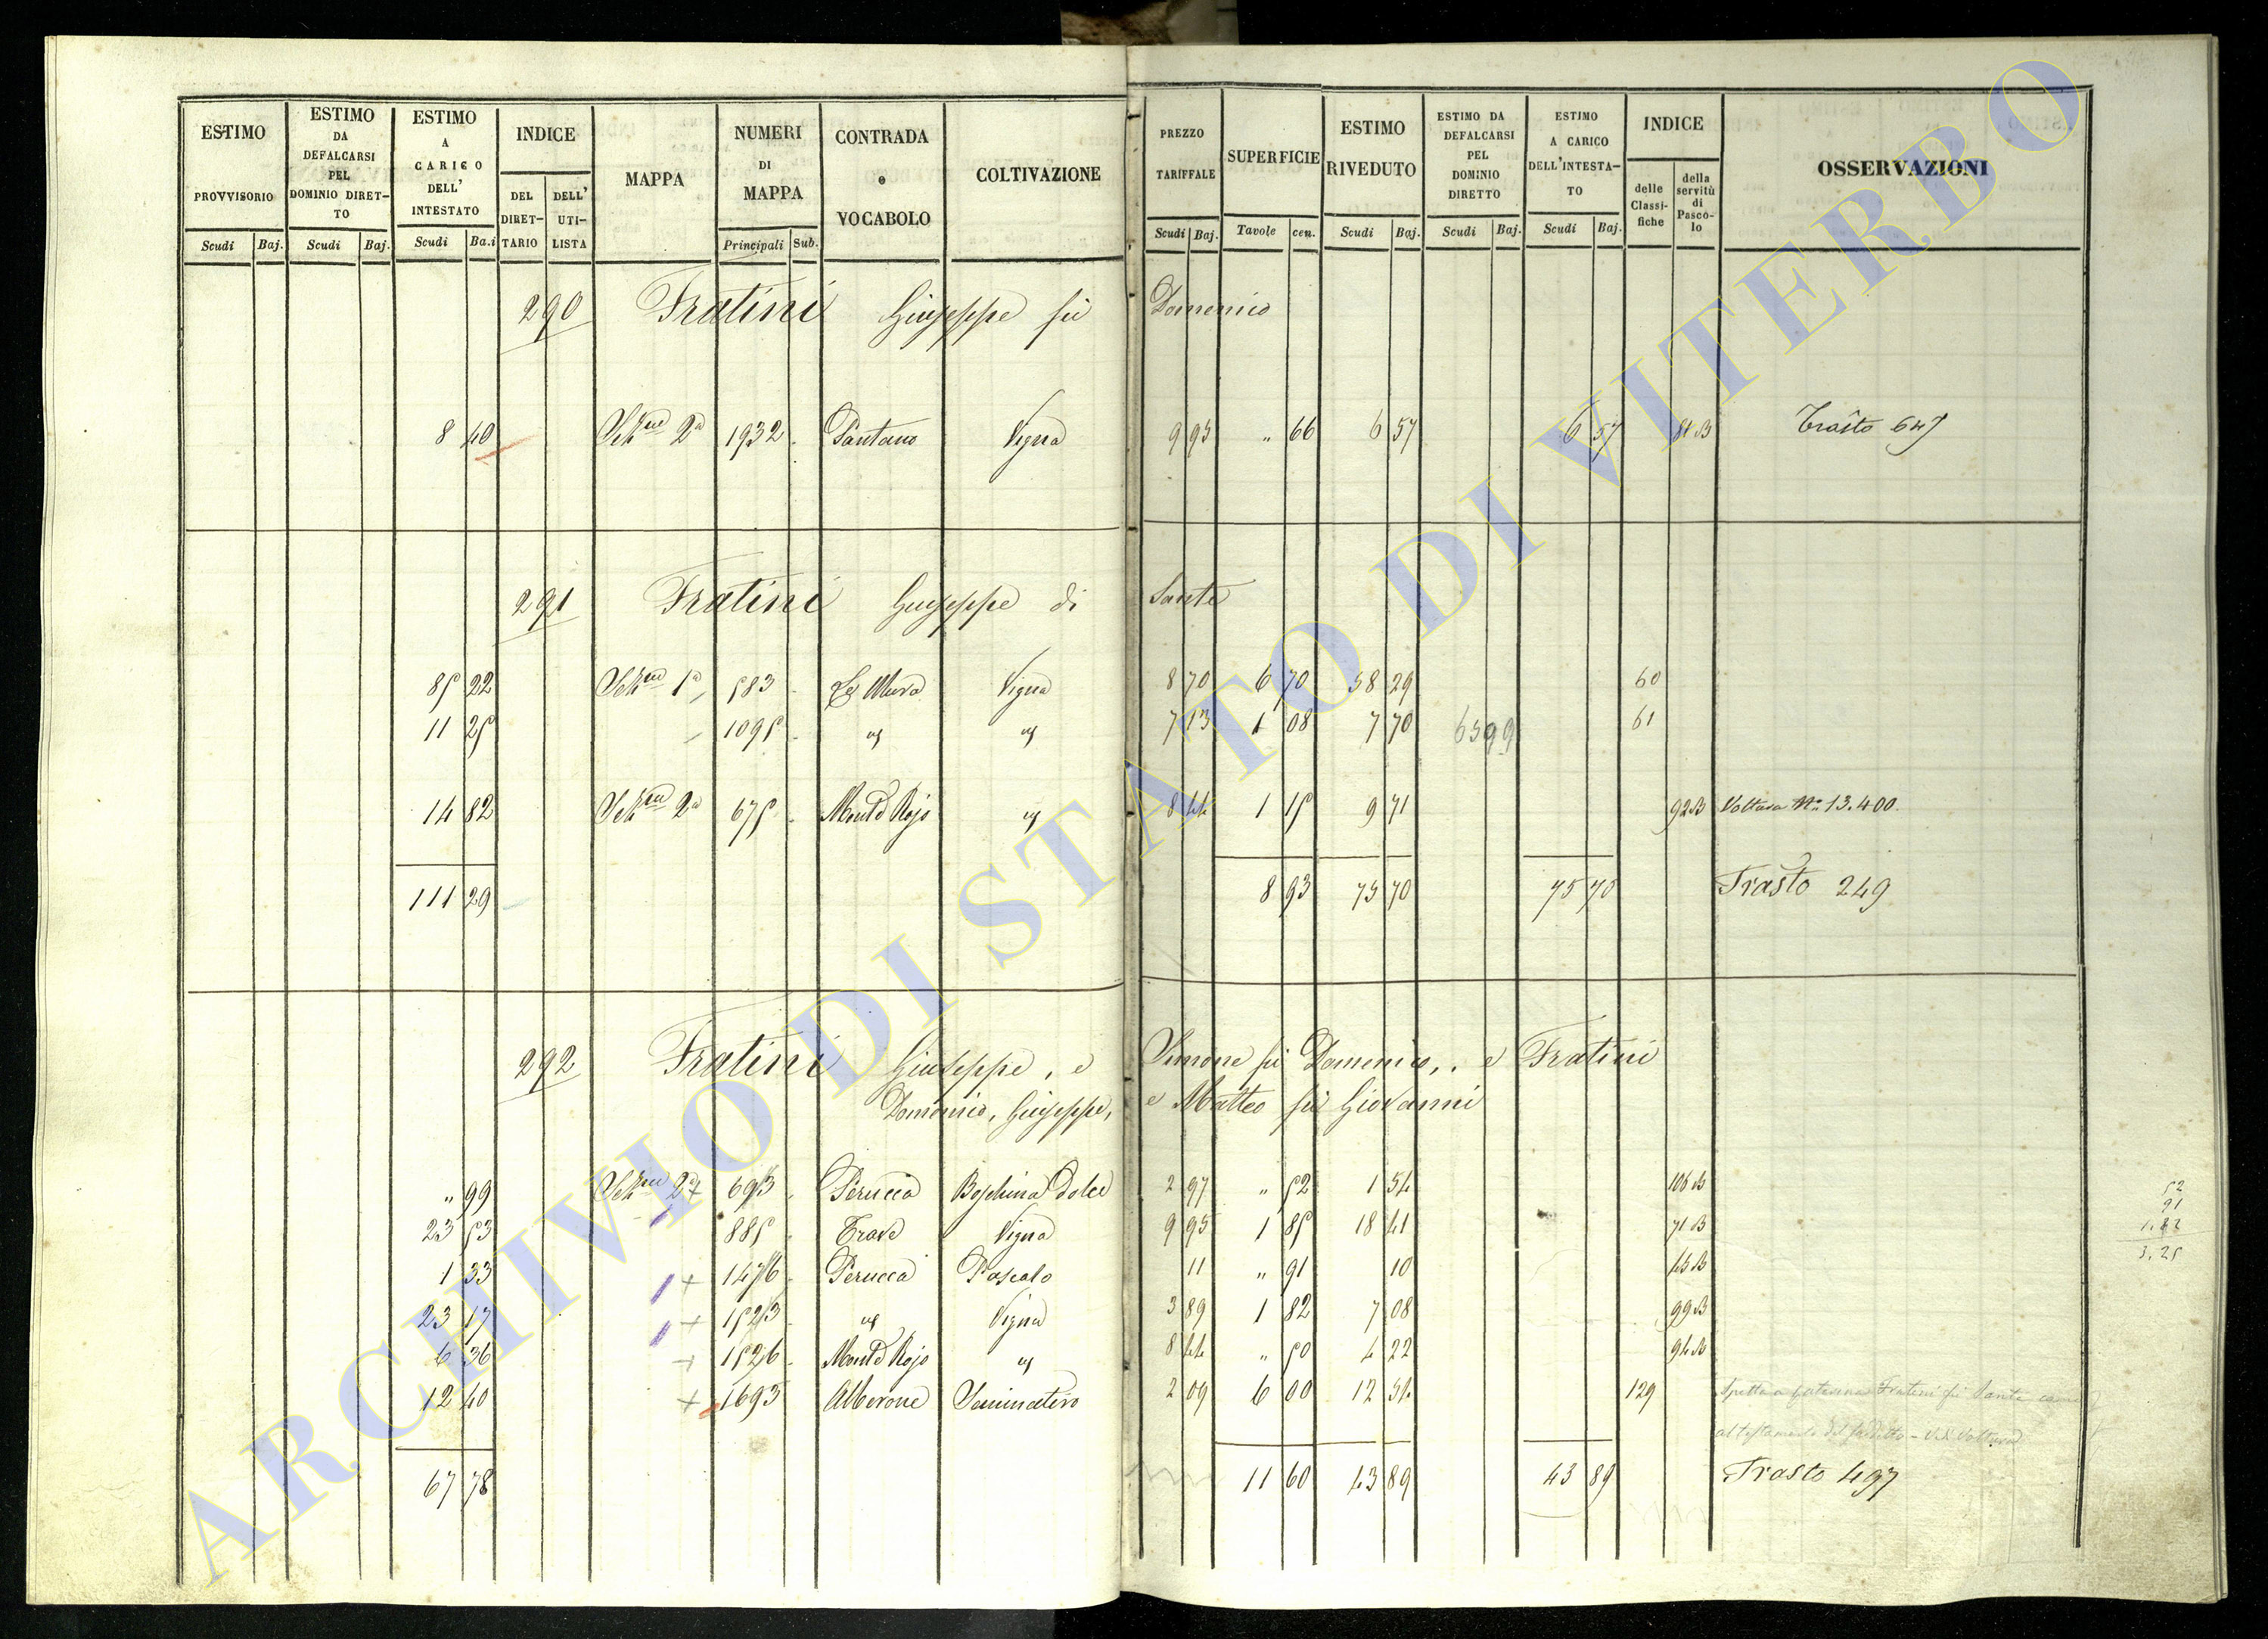 ESTIMO PROVVISORIO | ESTIMO DA DEFALCARSI PEL DOMINIO DIRET-TO | ESTIMO A CARICO DELL' INTESTATO | INDICE | MAPPA | NUMERI DI MAPPA | CONTRADA e VOCABOLO | COLTIVAZIONE | PREZZO TARIFFALE | SUPERFICIE | ESTIMO RIVEDUTO | ESTIMO DA DEFALCARSI PEL DOMINIO DIRETTO | ESTIMO A CARICO DELL'INTESTA-TO | INDICE | OSSERVAZIONI
Scudi | Baj. | Scudi | Baj. | Scudi | Ba.i | DEL DIRET-TARIO | DELL' UTI-LISTA | Principali | Sub. | Scudi | Baj. | Tavole | cen. | Scudi | Baj. | Scudi | Baj. | Scudi | Baj. | delle Classi-fiche | della servitù di Pasco-lo
290 Fratini Giuseppe fù Domenico
8 40 | 2a | 1932 | Pantano | Vigna | 9 95 | " 66 | 6 57 | 6 57 | 81 B | Trasto 647
291 Fratini Giuseppe di Sante
85 22 | 1a | 583 | Le Mura | Vigna | 8 70 | 6 70 | 58 29 | 60
11 25 | 1095 | 7 13 | 1 08 | 7 70 | 6599 | 61
14 82 | 2a | 675 | Monte Rojo | 8 44 | 1 15 | 9 71 | 92 B | Voltura No 13.400.
111 29 | 8 93 | 75 70 | 75 70 | Trasto 249
292 Fratini Giuseppe, e Simone fù Domenico, e Fratini
Domenico, Giuseppe, e Matteo fù Giovanni
" 99 | 2a | 693 | Perucca | Boschina dolce | 2 97 | " 52 | 1 54 | 106 B | 52
23 53 | 885 | Trove | Vigna | 9 95 | 1 85 | 18 41 | 71 B | 91
1 33 | 1476 | Perucca | Pascolo | 11 | " 91 | 10 | 45 B | 1.82
23 17 | 1523 | Vigna | 3 89 | 1 82 | 7 08 | 99 B | 3.25
6 36 | 1526 | Monte Rojo | 8 44 | " 50 | 4 22 | 94 B
12 40 | 1693 | Alberone | Seminativo | 2 09 | 6 00 | 12 54 | 129 | Spetta a Fratini fù Sante
67 78 | 11 60 | 43 89 | 43 89 | Trasto 497
ARCHIVIO DI STATO DI VITERBO